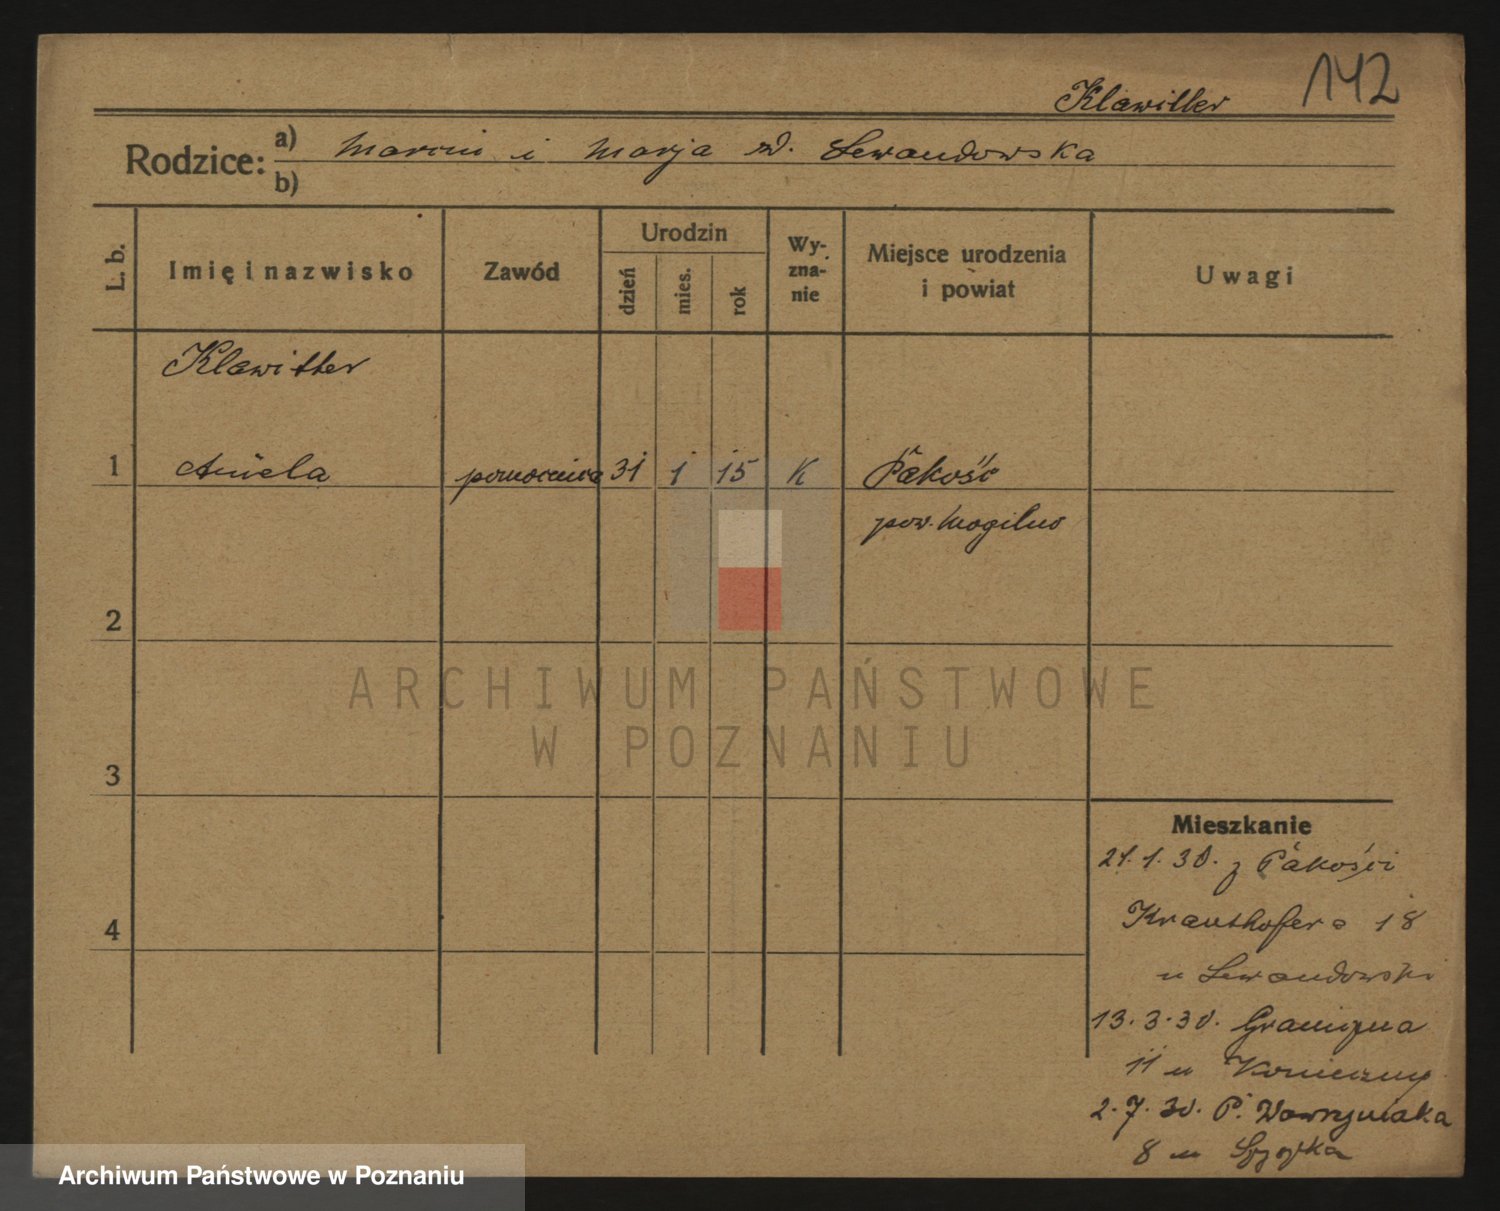 142
Klawitter
Rodzice: a) Marcin i Marja zd. Lewandowska
b)
L. b.
Imię i nazwisko
Zawód
Urodzin
dzień
mies.
rok
Wy-
zna-
nie
Miejsce urodzenia
i powiat
Uwagi
Klawitter
1 Aniela pomocnica 31 1 15 K Pakość
pow. Mogilno
2
ARCHIWUM PAŃSTWOWE
W POZNANIU
3
Mieszkanie
21.1.30. z Pakości
Krauthofera 18
4
u Lewandowski
13.3.30. Graniczna
11 u Konieczny
2.7.30. P. Wawrzyniaka
8 u
Archiwum Państwowe w Poznaniu